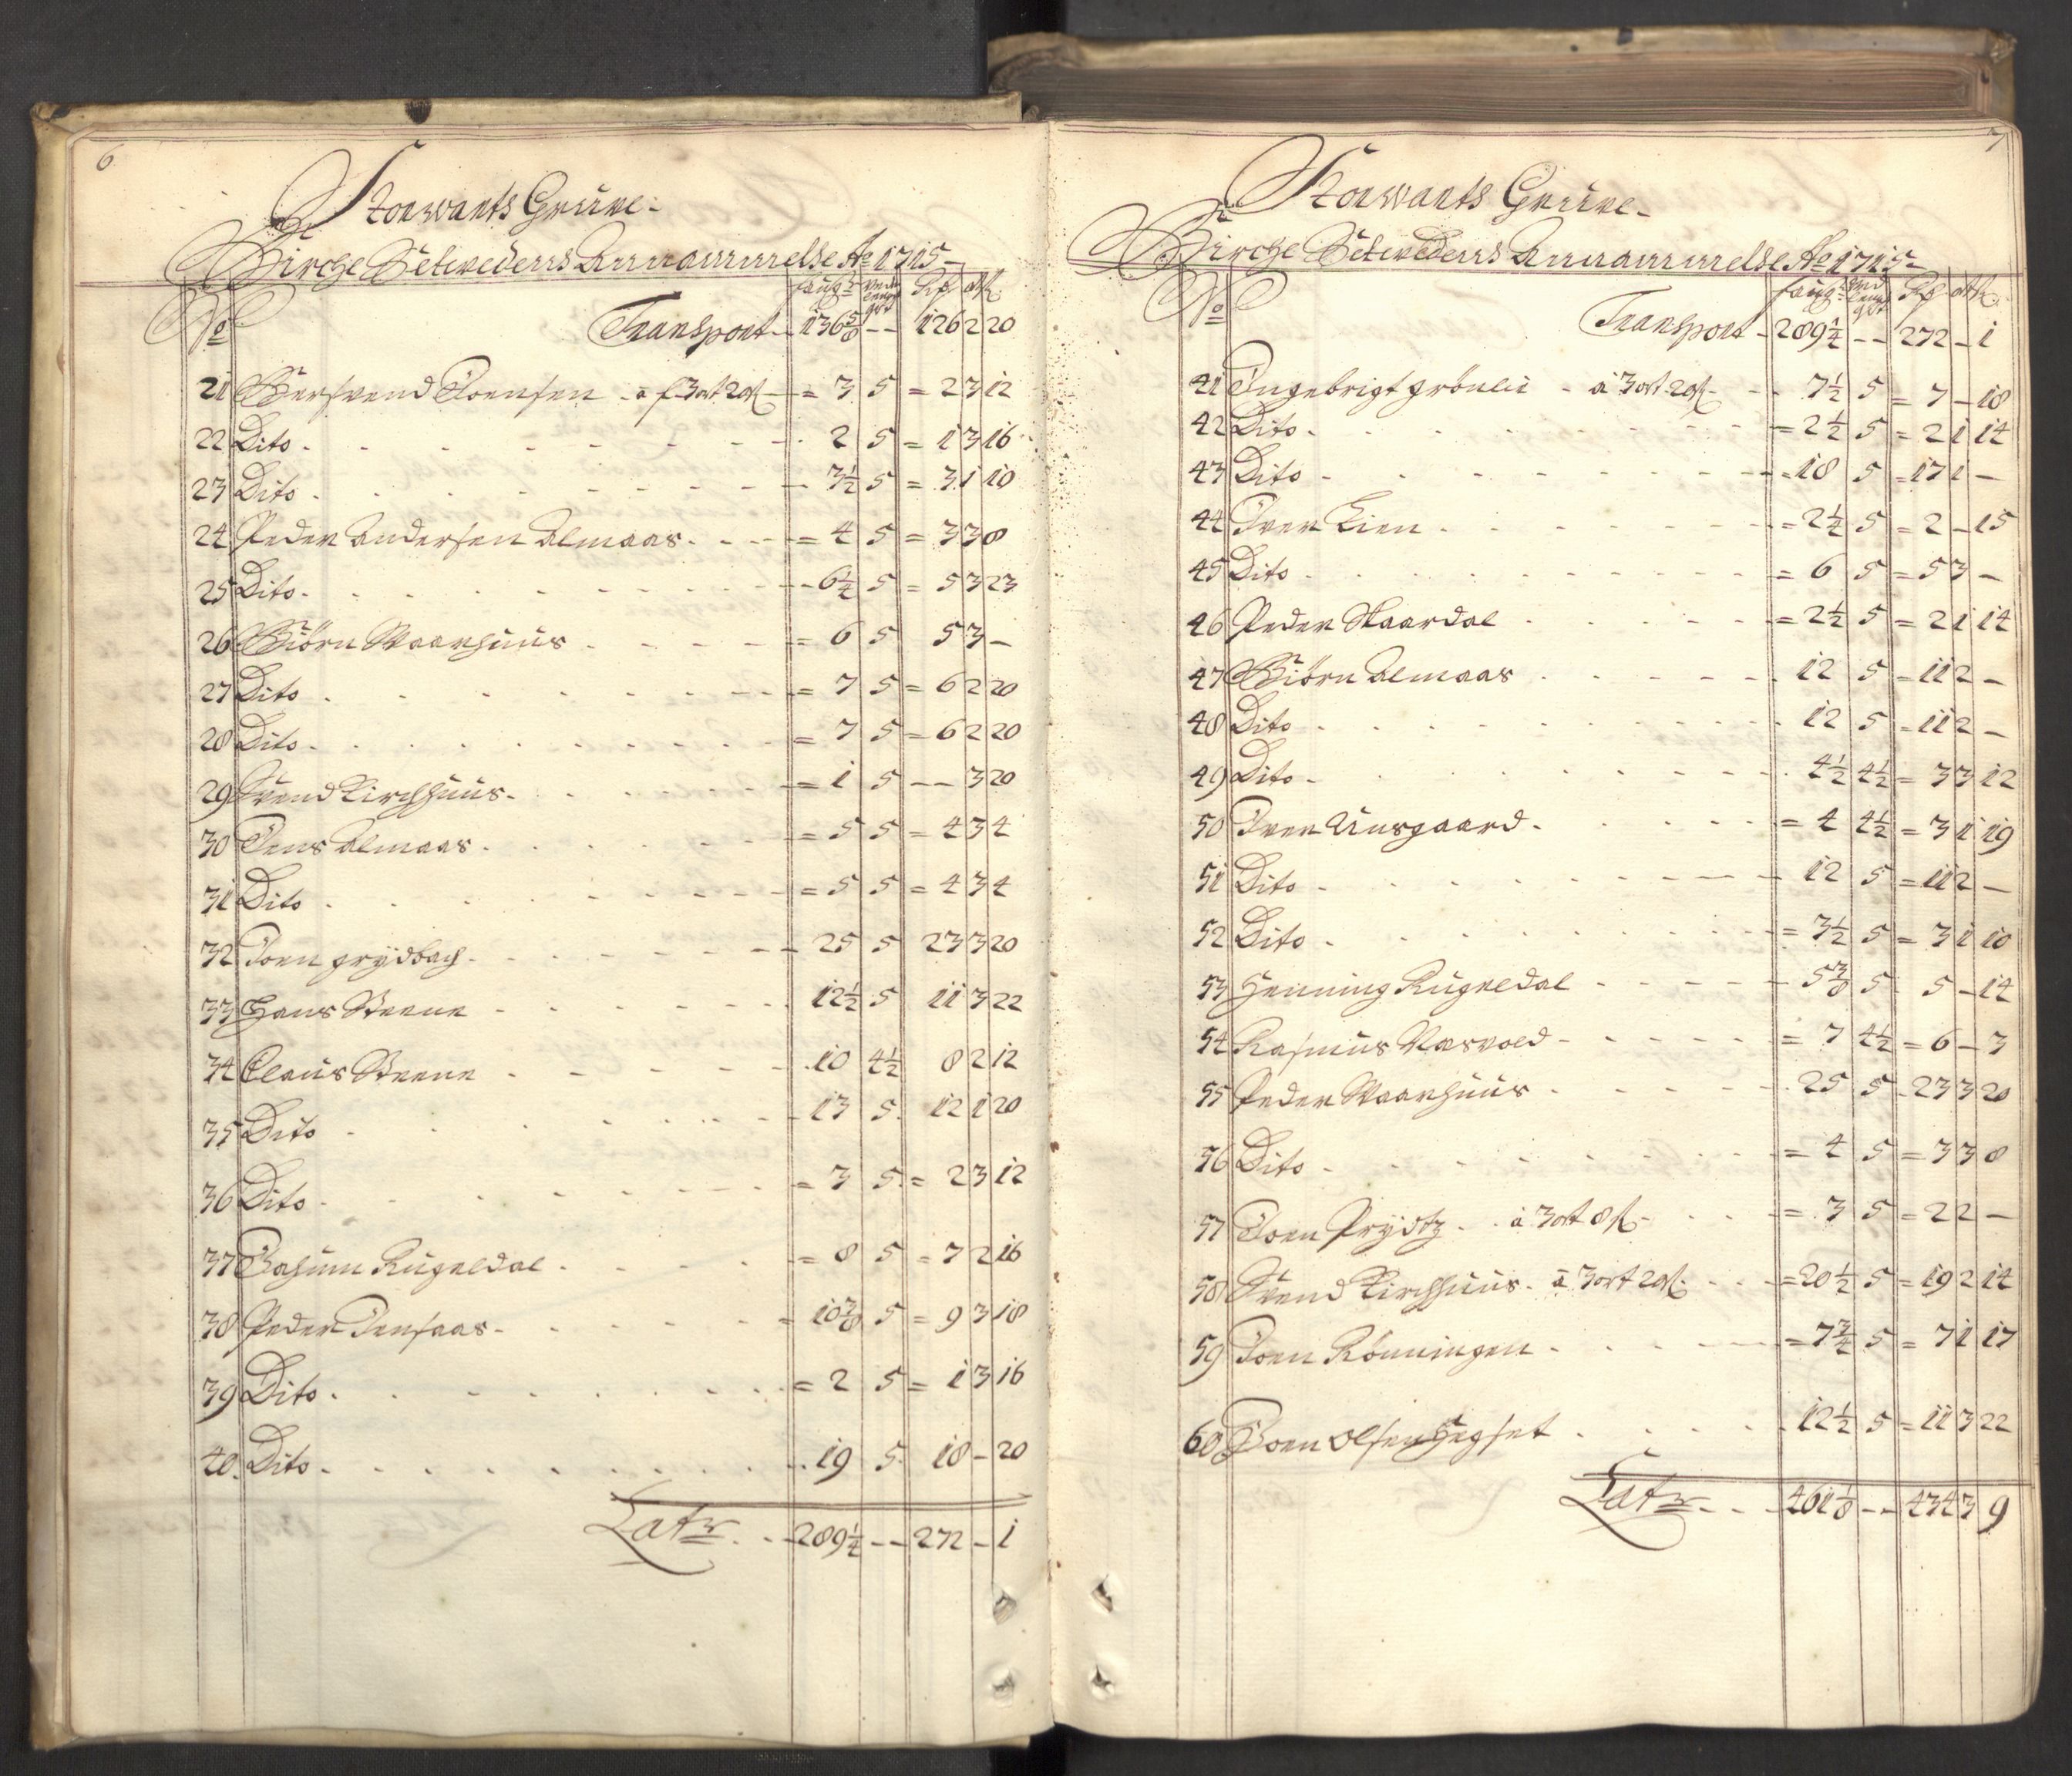 6
Storwarts Grüve
Bircke Setwedens Annammelse Ao 1715
No faug: Rd ort
Transport 136 5/8 - - 126 2 20
21 Bersvend Joensen à 3 ort 20 s = 3 5 = 2 3 12
22 Dito 2 5 = 1 3 16
23 Dito 3 1/2 5 = 3 1 10
24 Peder Andersen Almaas = 4 5 = 3 3 8
25 Dito 6 1/4 5 = 5 3 23
26 Biörn Skaarhuus = 6 5 5 3 -
27 Dito = 7 5 = 6 2 20
28 Dito = 7 5 = 6 2 20
29 Svend Kirchhuus = 1 5 - - 3 20
30 Jens Almaas = 5 5 = 4 3 4
31 Dito = 5 5 = 4 3 4
32 Joen grydbach 25 5 23 3 20
33 Hans Steene 12 1/2 5 11 3 22
34 Claus Steene 10 4 1/2 8 2 12
35 Dito 13 5 12 1 20
36 Dito = 3 5 = 2 3 12
37 Jochum Rugeldal = 8 5 = 7 2 16
38 Peder Jensaas = 10 3/8 5 = 9 3 18
39 Dito = 2 5 = 1 3 16
40 Dito 19 5 18 - 20
Latr 289 1/4 - - 272 - 1
7
Storwarts Grüve
Bircke Setwedens Annammelse Ao 1715
No faug: Rd ort
Transport 289 1/4 - - 272 - 1
41 Ingebrigt grönlii à 3 ort 20 s 7 1/2 5 = 7 - 18
42 Dito = 2 1/2 5 = 2 1 14
43 Dito = 18 5 = 17 1 -
44 Iver Lien = 2 1/4 5 = 2 - 15
45 Dito = 6 5 = 5 3 -
46 Peder Skaardal = 2 1/2 5 = 2 1 14
47 Biörn Almaas 12 5 = 11 2 -
48 Dito 12 5 = 11 2 -
49 Dito 4 1/2 4 1/2 = 3 3 12
50 Iver Aasgaard = 4 4 1/2 = 3 1 19
51 Dito 12 5 = 11 2 -
52 Dito = 3 1/2 5 = 3 1 10
53 Henning Rugeldal 5 3/8 5 5 - 14
54 Rasmus Næsvold = 7 4 1/2 = 6 - 3
55 Peder Skaarhuus 25 5 23 3 20
56 Dito = 4 5 = 3 3 8
57 Joen Prydtz à 3 ort 8 s = 3 5 = 2 2 -
58 Svend Kirchhuus à 3 ort 20 s = 20 1/2 5 = 19 2 14
59 Joen Rönningen = 7 3/4 5 = 7 1 17
60 Joen Olsen Hegset 12 1/2 5 = 11 3 22
Latr 461 1/8 - - 434 3 9